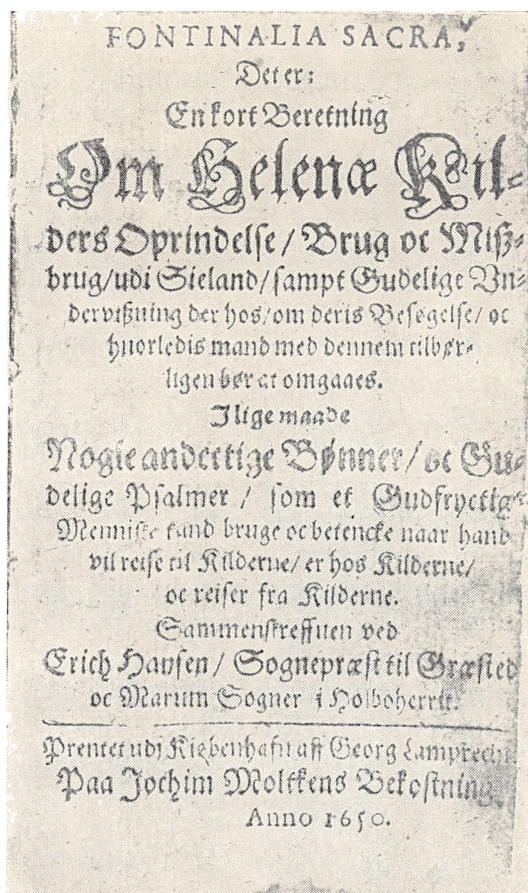 FONTINALIA SACRA,
Det er:
En kort Beretning
Om Helenæ Kil-
ders Oprindelse / Brug oc Miß-
brug / udi Sieland / sampt Gudelige Vn-
dervißning der hos / om deris Besøgelse / oc
huorledis mand med dennem tilbør-
ligen bør at omgaaes.
I lige maade
Nogle andectige Bønner / oc Gu-
delige Psalmer / som et Gudfryctig
Menniske kand bruge oc betencke naar hand
vil reise til Kilderne / er hos Kilderne /
oc reiser fra Kilderne.
Sammenskreffuen ved
Erich Hansen / Sognepræst til Græsted
oc Marum Sogner i Holboherrit.
Prentet udi Kiøbenhafn aff Georg Lamprecht
Paa Jochim Moltkens Bekostning
Anno 1650.